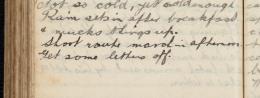 Not so cold, yet cold enough.
Rain sets in after breakfast
& mucks things up.
Short route march in afternoon
Get some letters off.